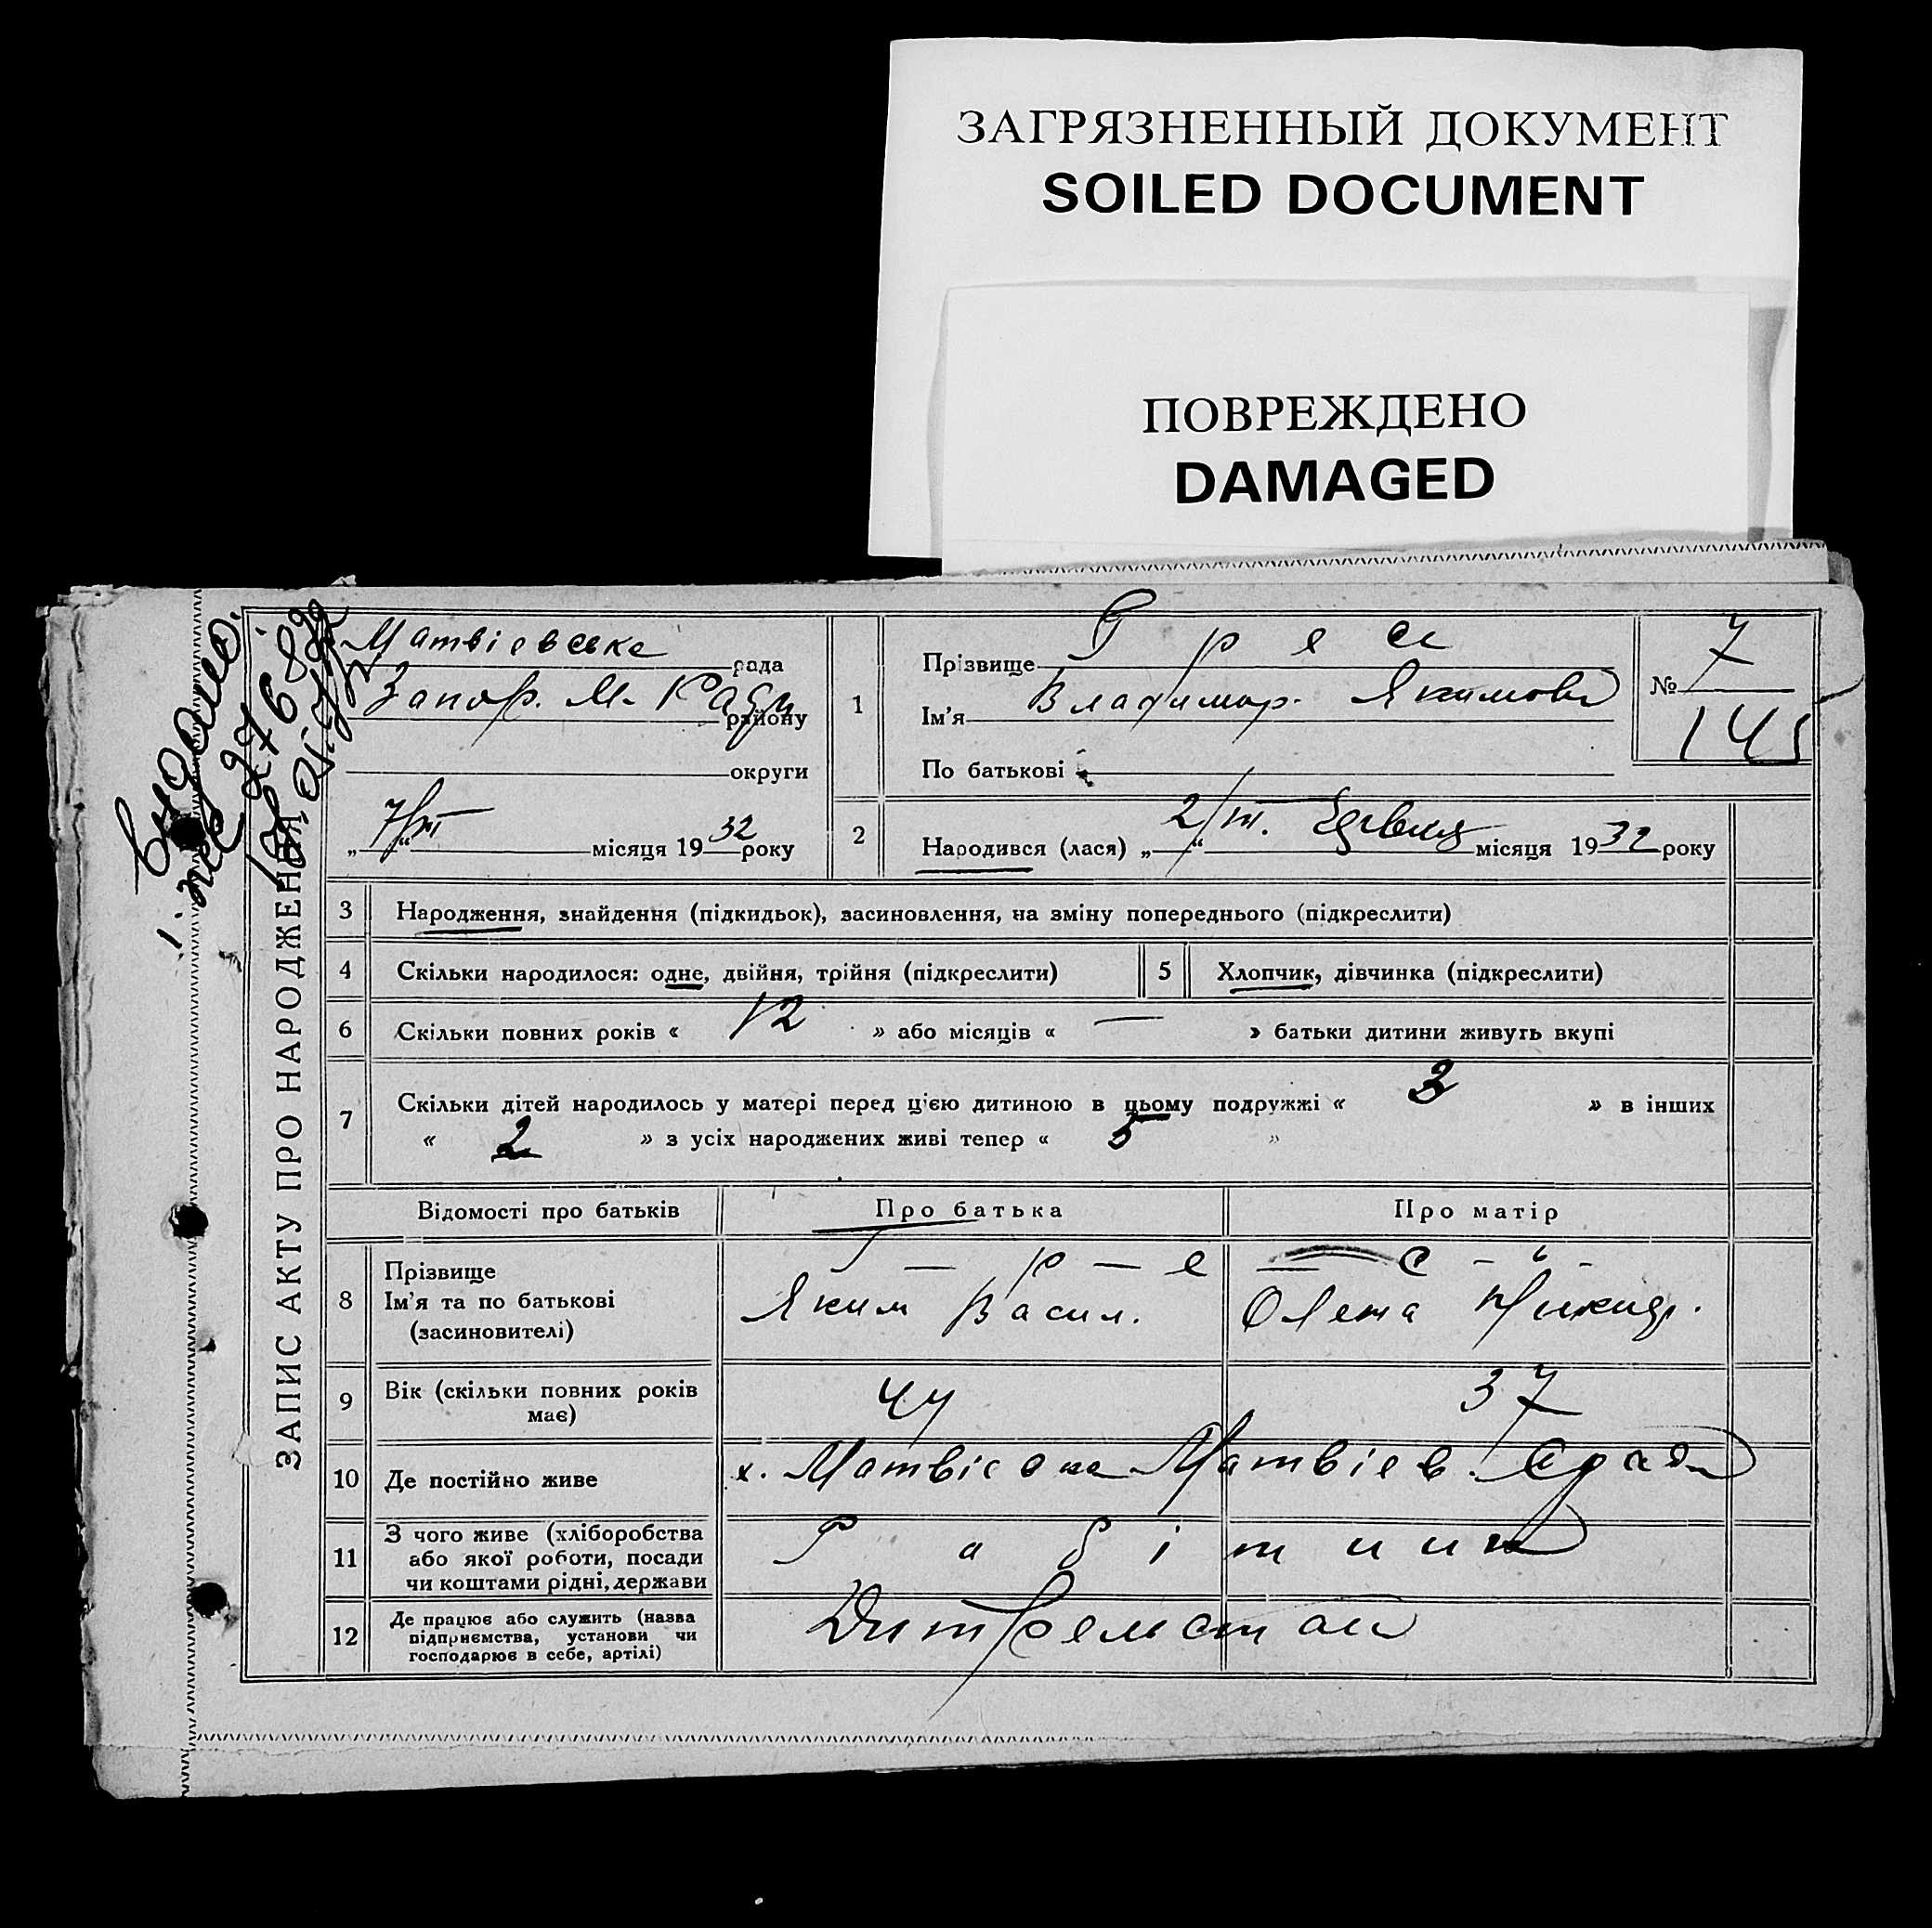 ЗАГРЯЗНЕННЫЙ ДОКУМЕНТ
SOILED DOCUMENT
ПОВРЕЖДЕНО
DAMAGED
ЗАПИС АКТУ ПРО НАРОДЖЕННЯ
Матвієвська рада
Запор. М. Ради району
округи
„ “ місяця 1932 року
1 Прізвище
Ім’я Владимир Якимови
По батькові
№ 7
145
2 Народився (лася) „2/ “ місяця 1932 року
3 Народження, знайдення (підкидьок), засиновлення, на зміну попереднього (підкреслити)
4 Скільки народилося: одне, двійня, трійня (підкреслити)
5 Хлопчик, дівчинка (підкреслити)
6 Скільки повних років « 12 » або місяців « — » батьки дитини живуть вкупі
7 Скільки дітей народилось у матері перед цією дитиною в цьому подружжі « 3 » в інших
« 2 » з усіх народжених живі тепер « 5 »
Відомості про батьків Про батька Про матір
8 Прізвище
Ім’я та по батькові Яким Васил. Олена Никид.
(засиновителі)
9 Вік (скільки повних років має) 44 37
10 Де постійно живе х. Матвієвка Матвіев. с/рада
11 З чого живе (хліборобства
або якої роботи, посади
чи коштами рідні, держави
Робітник
12 Де працює або служить (назва
підприємства, установи чи
господарює в себе, артілі)